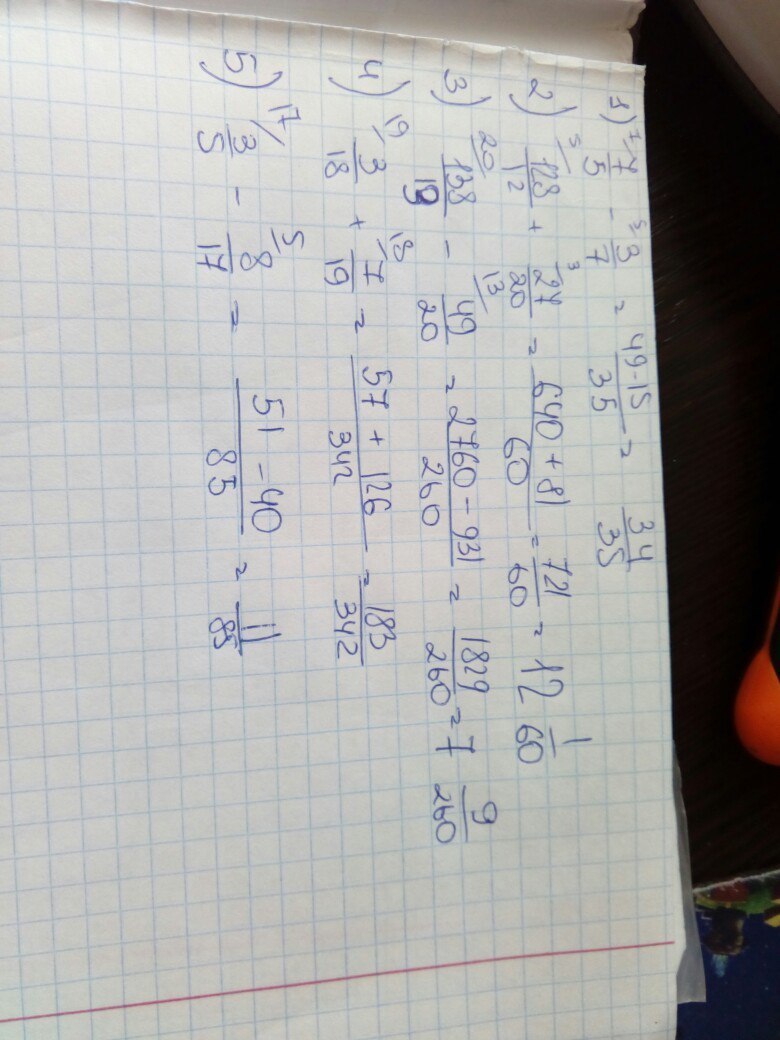 1) 7/ 7/5 - 5/ 3/7 = (49-15)/35 = 34/35
2) 5/ 128/12 + 3/ 27/20 = (640+81)/60 = 721/60 = 12 1/60
3) 20/ 138/19 - 13/ 49/20 = (2760-931)/260 = 1829/260 = 7 9/260
4) 19/ 3/18 + 18/ 7/19 = (57+126)/342 = 183/342
5) 17/ 3/5 - 5/ 8/17 = (51-40)/85 = 11/85